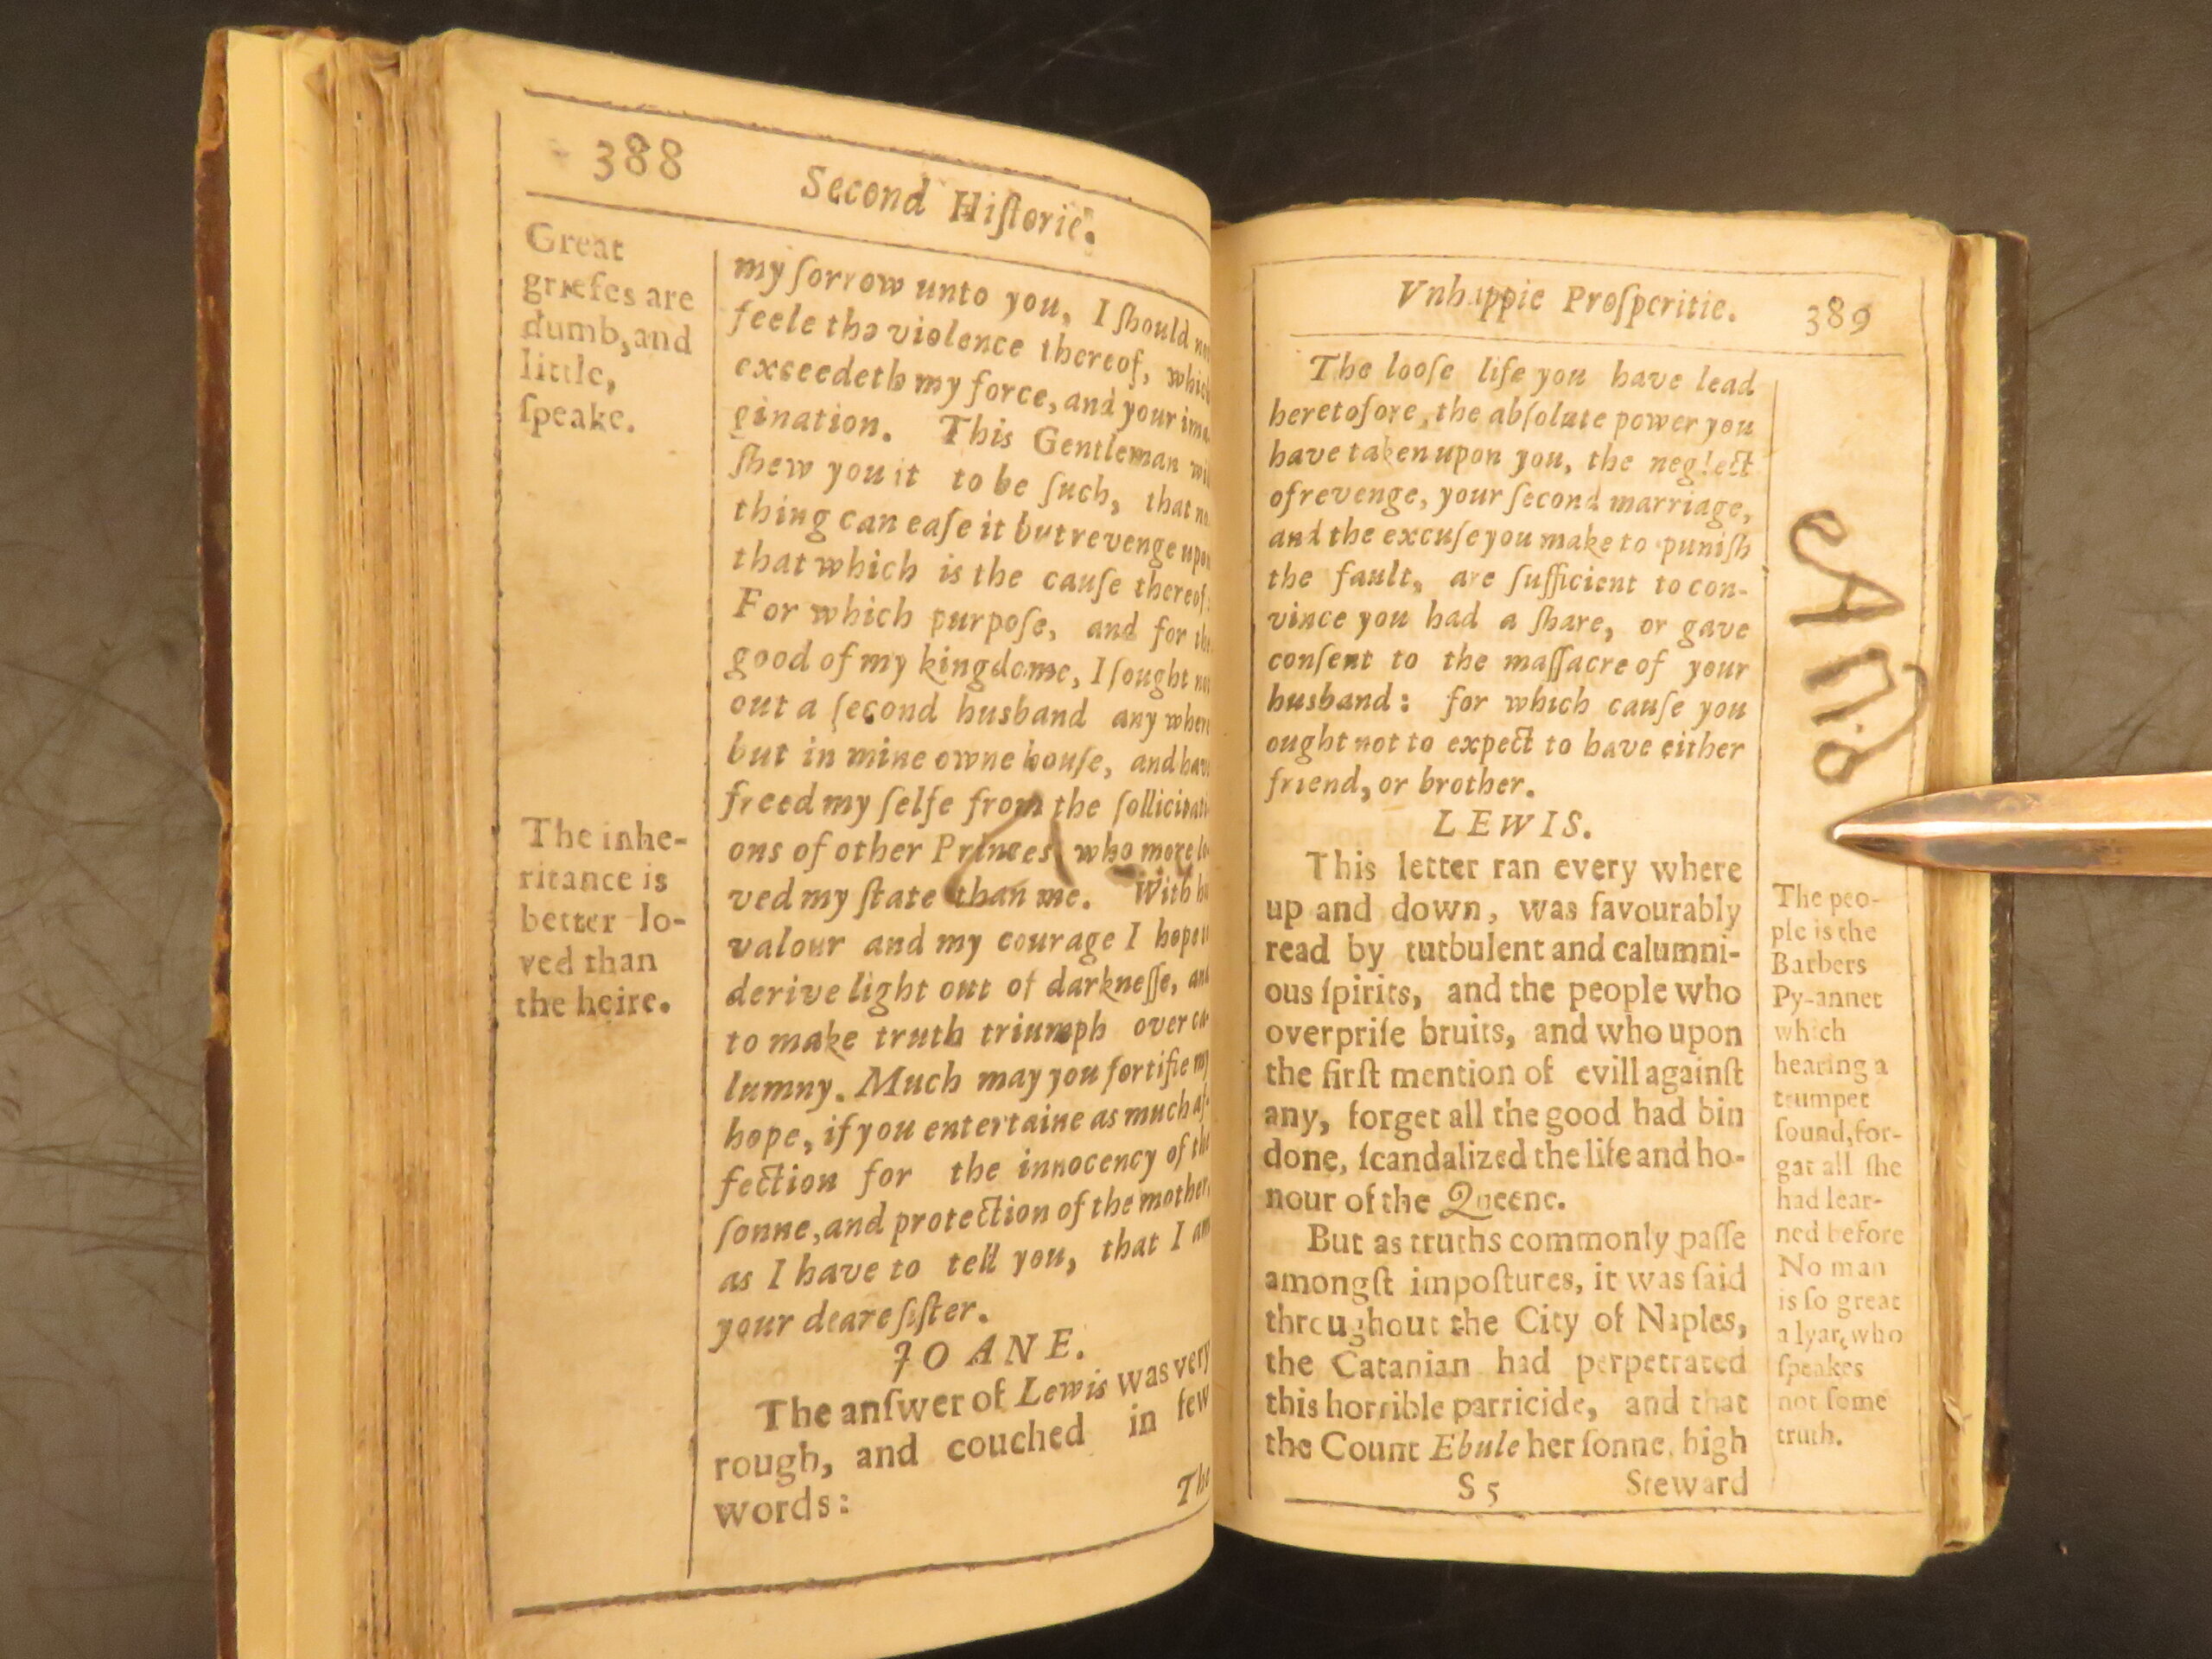 388
Second Hiſtorie.
Great
griefes are
dumb, and
little,
ſpeake.
my ſorrow unto you, I ſhould
feele the violence thereof, which
exceedeth my force, and your ima
gination. This Gentleman
ſhew you it to be ſuch, that no
thing can eaſe it but revenge upon
that which is the cauſe thereof:
For which purpoſe, and for the
good of my kingdome, I ſought
out a ſecond husband any where
but in mine owne houſe, and have
freed my ſelfe from the ſollicitati
ons of other Princes who more lo
ved my ſtate than me. With
valour and my courage I hope
derive light out of darkneſſe, and
to make truth triumph over ca-
lumny. Much may you fortifie my
hope, if you entertaine as much af-
fection for the innocency of the
ſonne, and protection of the mother,
as I have to tell you, that I am
your deare ſiſter.
JOANE.
The anſwer of Lewis was very
rough, and couched in few
words:
The
The inhe-
ritance is
better lo-
ved than
the heire.
Vnhappie Proſperitie.
389
The looſe life you have lead
heretofore, the abſolute power you
have taken upon you, the neglect
of revenge, your ſecond marriage,
and the excuſe you make to puniſh
the fault, are ſufficient to con-
vince you had a ſhare, or gave
conſent to the maſſacre of your
husband: for which cauſe you
ought not to expect to have either
friend, or brother.
LEWIS.
This letter ran every where
up and down, was favourably
read by tutbulent and calumni-
ous ſpirits, and the people who
overpriſe bruits, and who upon
the firſt mention of evill againſt
any, forget all the good had bin
done, ſcandalized the life and ho-
nour of the Queene.
But as truths commonly paſſe
amongſt impoſtures, it was ſaid
throughout the City of Naples,
the Catanian had perpetrated
this horrible parricide, and that
the Count Ebule her ſonne, high
S 5
Steward
The peo-
ple is the
Barbers
Py-annet
which
hearing a
trumpet
ſound, for-
gat all ſhe
had lear-
ned before
No man
is ſo great
a lyar, who
ſpeakes
not ſome
truth.